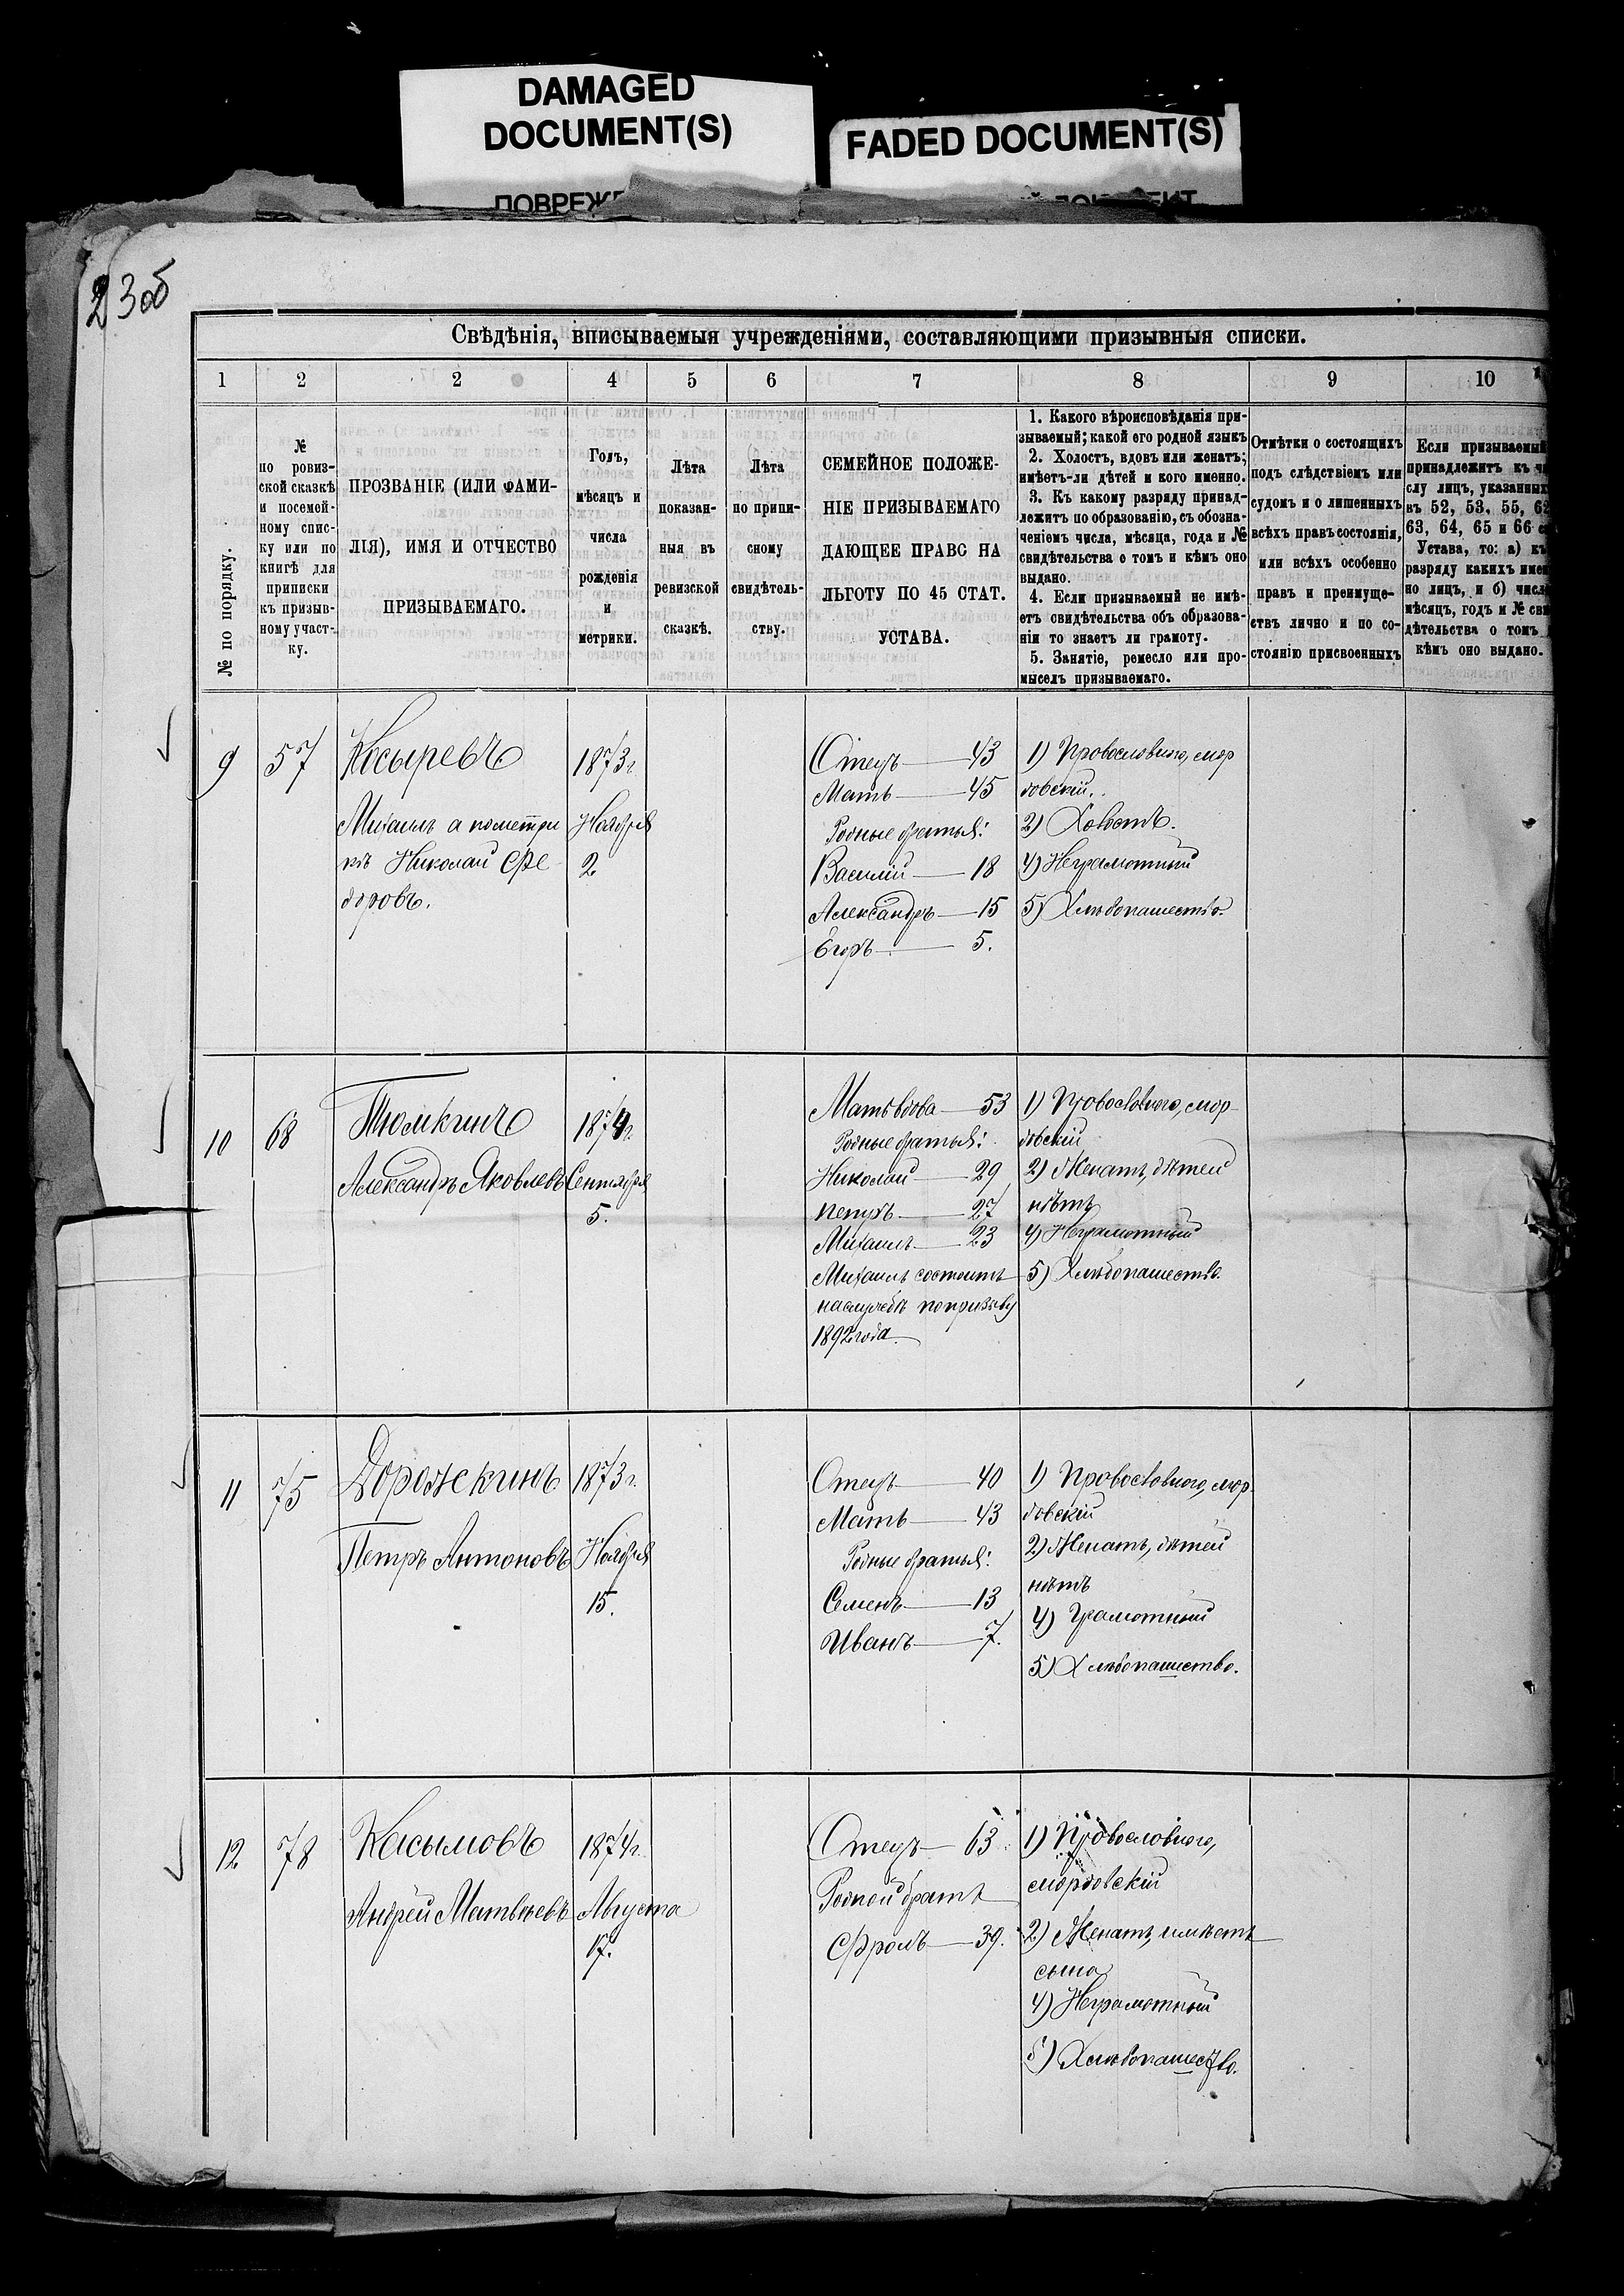 DAMAGED
DOCUMENT(S)
FADED DOCUMENT(S)
23об
Свѣдѣнія, вписываемыя учрежденіями, составляющими призывныя списки.
1 2 2 4 5 6 7 8 9 10
№ по порядку.
№
по ровиз-
ской сказкѣ
и посемей-
ному спис-
ку или по
книгѣ для
приписки
къ призыв-
ному участ-
ку.
ПРОЗВАНІЕ (ИЛИ ФАМИ-
ЛІЯ), ИМЯ И ОТЧЕСТВО
ПРИЗЫВАЕМАГО.
Годъ,
мѣсяцъ и
числа
рожденія
и
метрики.
Лѣта
показан-
ныя въ
ревизской
сказкѣ.
Лѣта
по припи-
сному
свидѣтель-
ству.
СЕМЕЙНОЕ ПОЛОЖЕ-
НІЕ ПРИЗЫВАЕМАГО
ДАЮЩЕЕ ПРАВО НА
ЛЬГОТУ ПО 45 СТАТ.
УСТАВА.
1. Какого вѣроисповѣданія при-
зываемый; какой его родной языкъ
2. Холостъ, вдовъ или женатъ;
имѣетъ-ли дѣтей и кого именно.
3. Къ какому разряду принад-
лежитъ по образованію, съ обозна-
ченіемъ числа, мѣсяца, года и №
свидѣтельства о томъ и кѣмъ оно
выдано.
4. Если призываемый не имѣ-
етъ свидѣтельства объ образова-
ніи то знаетъ ли грамоту.
5. Занятіе, ремесло или про-
мыселъ призываемаго.
Отмѣтки о состоящихъ
подъ слѣдствіемъ или
судомъ и о лишенныхъ
всѣхъ правъ состоянія,
или всѣхъ особенно
правъ и преимуще-
ствъ лично и по со-
стоянію присвоенныхъ
Если призываемый
принадлежитъ къ
слу лицъ, указанныхъ
въ 52, 53, 55, 62
63, 64, 65 и 66
Устава, то: а)
разряду какихъ
но лицъ, и б)
мѣсяцъ, годъ и №
дѣтельства о томъ
кѣмъ оно выдано.
9
57
Косыревъ
Михаилъ а пометри
къ Николай Фе
доровъ.
1873г.
Ноября
2
Отецъ 43
Мать 45
Родные братья:
Василій 18
Александръ 15
Егоръ 5.
1) Православного, мор
довскій.
2) Холостъ.
4) Неграмотный
5) Хлѣбопашество.
10
68
Тюмкинъ
Александръ Яковлевъ
1874г.
Сентября
5.
Мать вдова 53
Родные братья:
Николай 29
Петръ 27
Михаилъ 23
Михаилъ состоитъ
на службѣ по призыву
1892 года.
1) Православного, мор-
довскій
2) Женатъ, дѣтей
нѣтъ
4) Неграмотный
5) Хлѣбопашество.
11
75
Дорожкинъ
Петръ Антоновъ
1873г.
Ноября
15.
Отецъ 40
Мать 43
Родные братья:
Семенъ 13
Иванъ 7.
1) Православного, мор-
довскій
2) Женатъ, дѣтей
нѣтъ
4) Грамотный
5) Хлѣбопашество.
12
78
Касымовъ
Андрей Матвѣевъ
1874г.
Августа
17.
Отецъ 63
Родной братъ
Фролъ 39.
1) Православного,
мордовскій
2) Женатъ, имѣетъ
сына
4) Неграмотный
5) Хлѣбопашество.